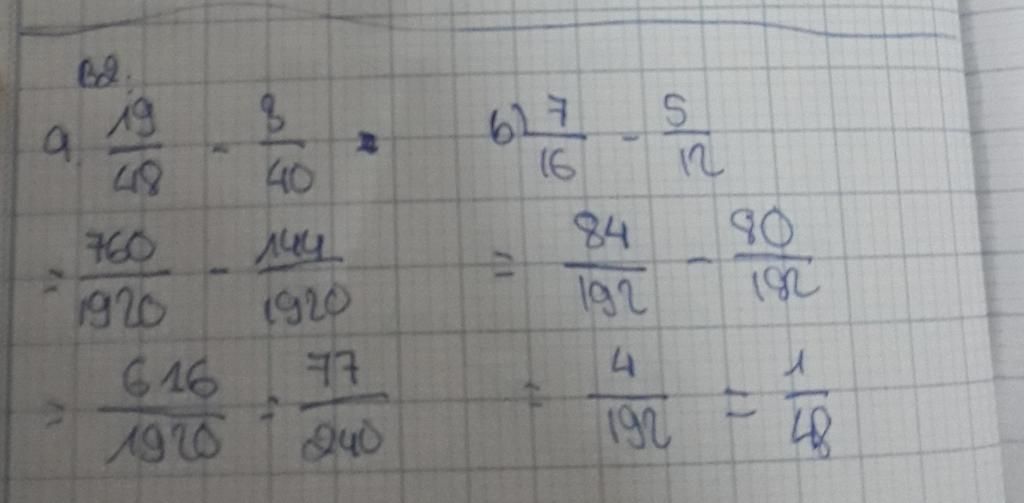 B2.
a. 19/48 - 3/40
= 760/1920 - 144/1920
= 616/1920 = 77/240
b) 7/16 - 5/12
= 84/192 - 80/192
= 4/192 = 1/48